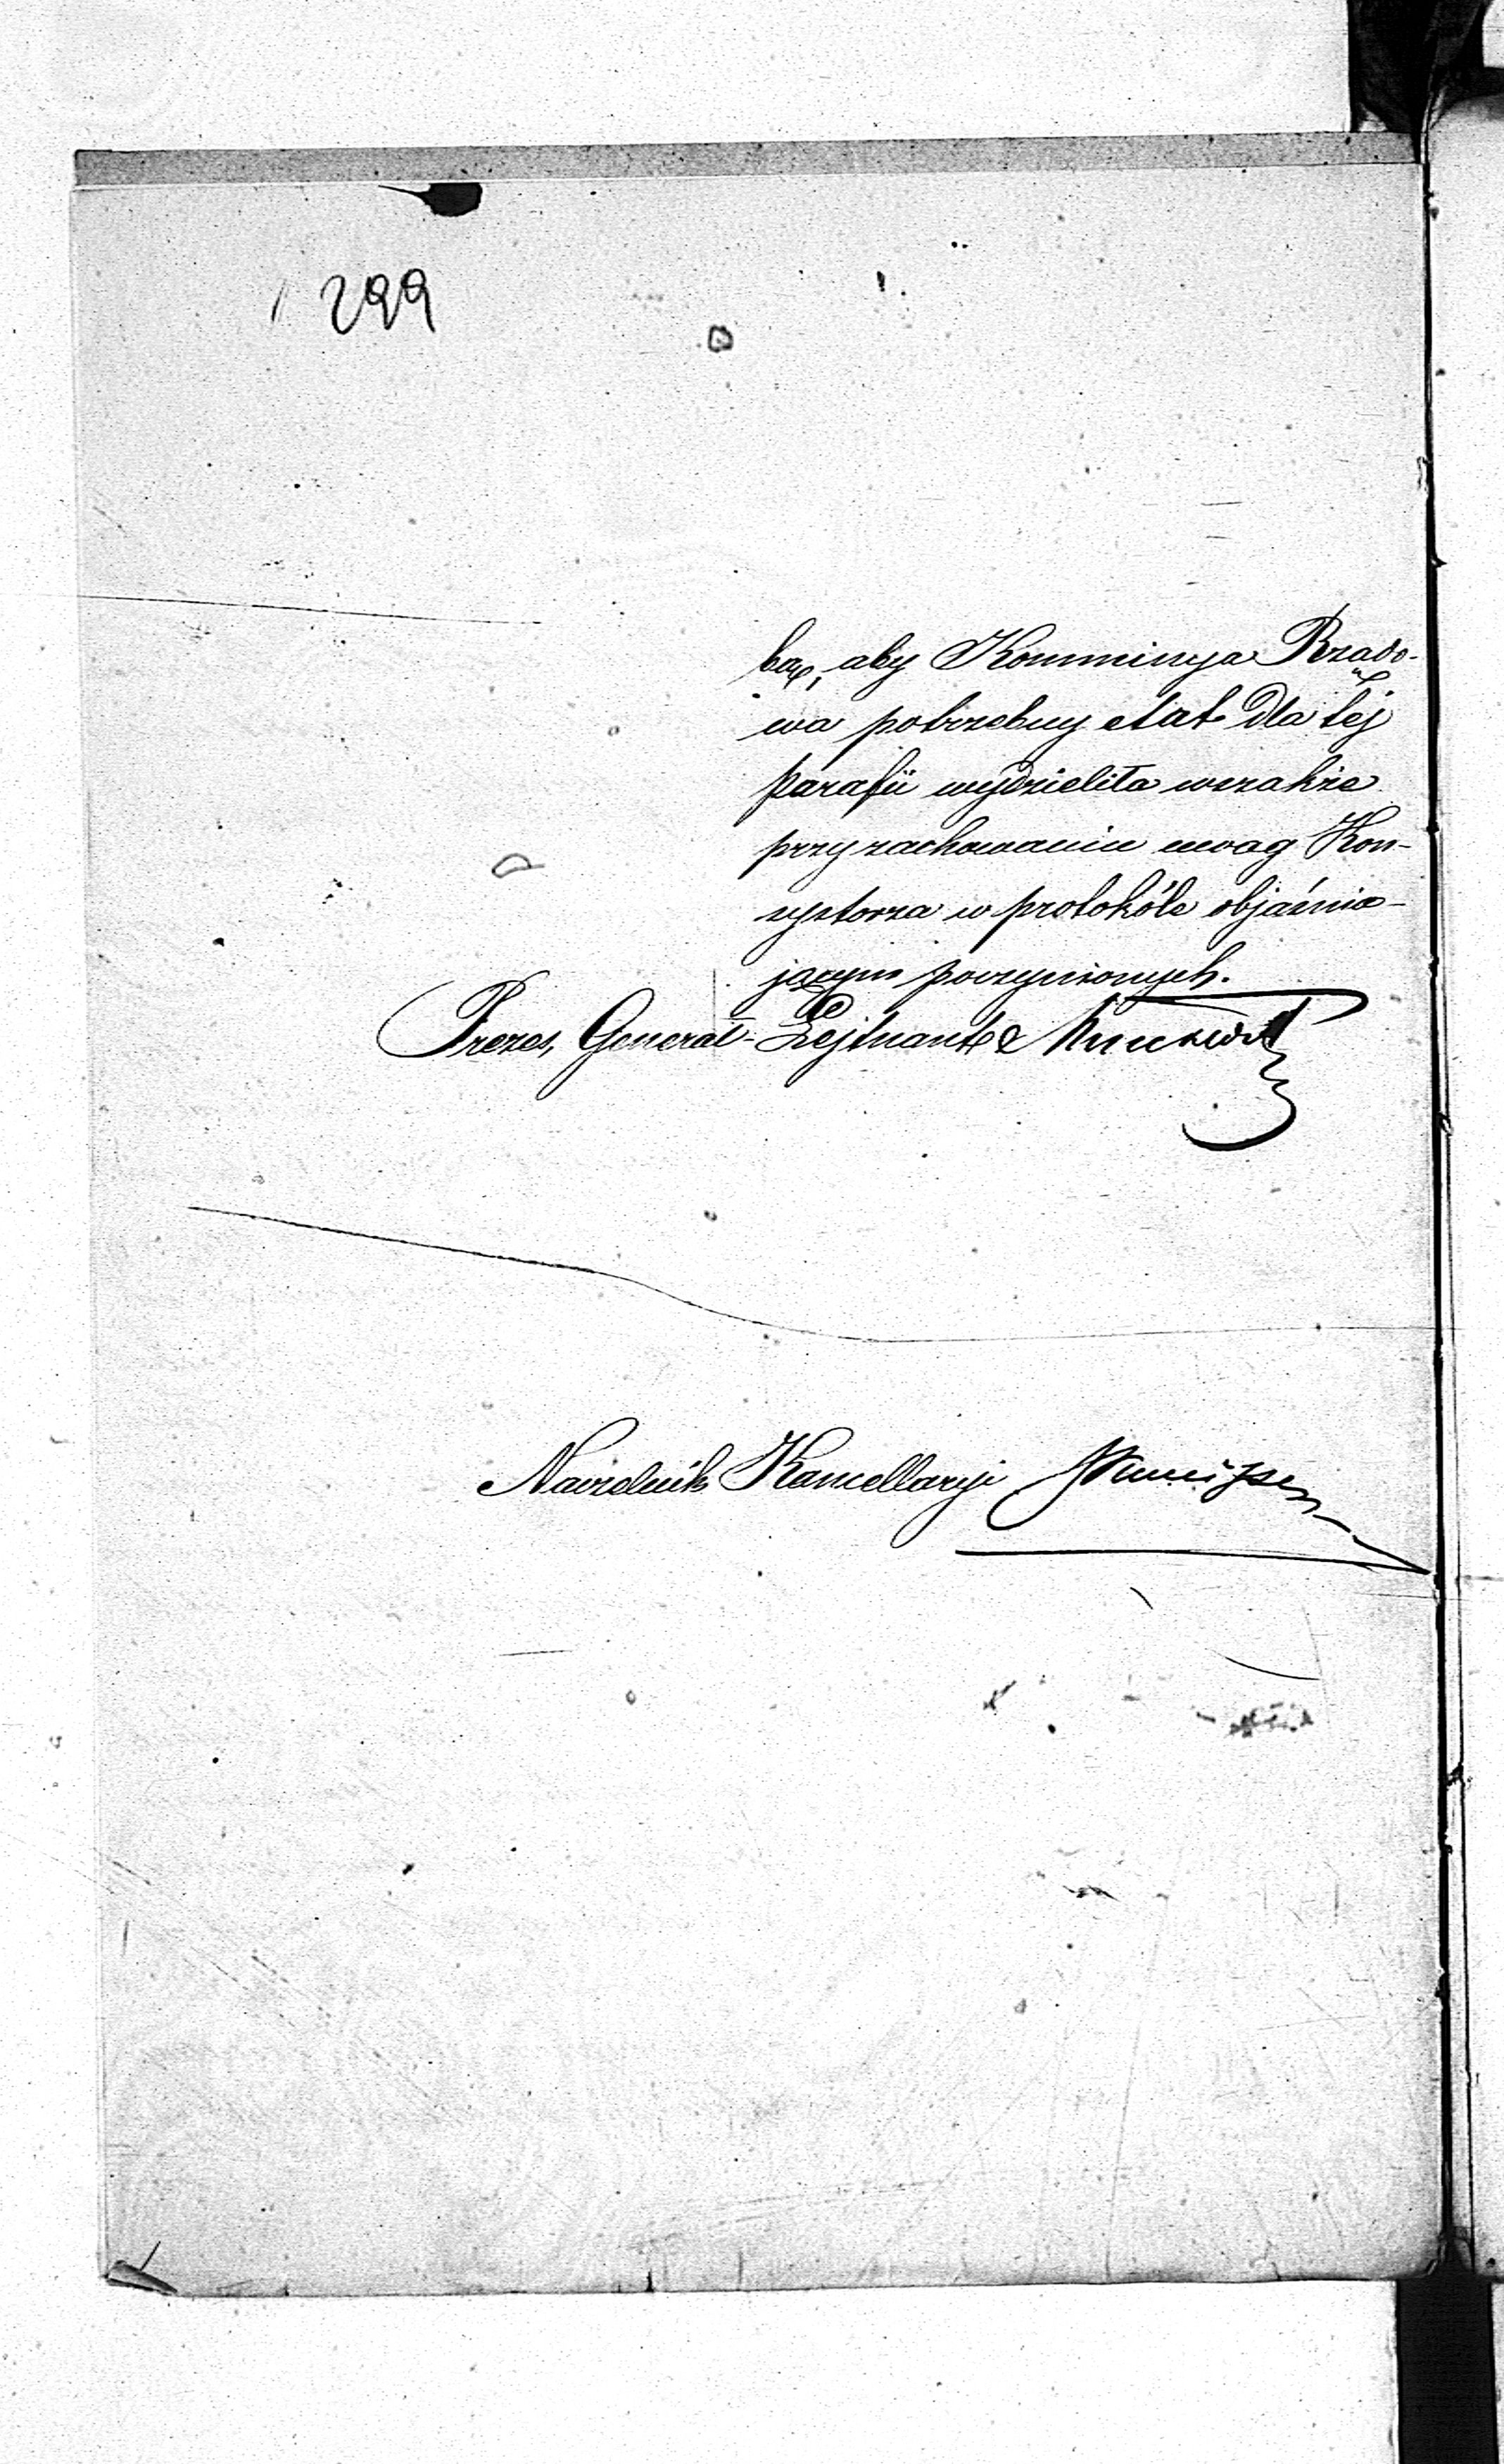 299
bą, aby Kommisya Rządo-
wa potrzebny etat dla téj
parafii wydzieliła wszakże
przy zachowaniu uwag Kon-
systorza w protokóle objaśnia-
jącym poczynionych.
Prezes, Generał-Lejtnant
Naczelnik Kancellaryi